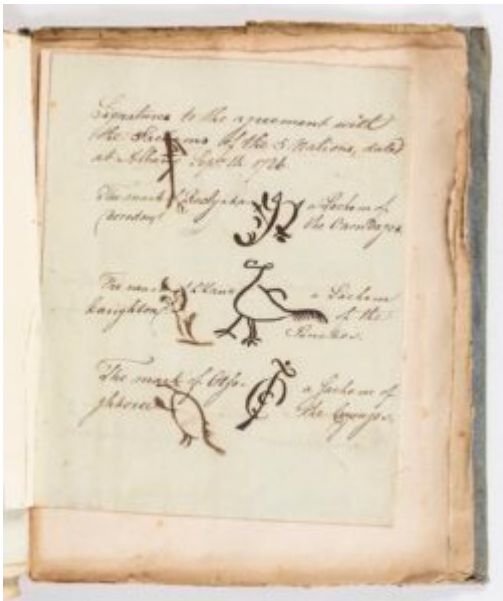 Signatures to the agreement with
the Sachems of the 5 Nations, dated
at Albany Septr 14 1726.
The mark of a Sachem of
the Onondages
The mark of a Sachem
of the
Senekes.
The mark of a Sachem of
the Cayuges.